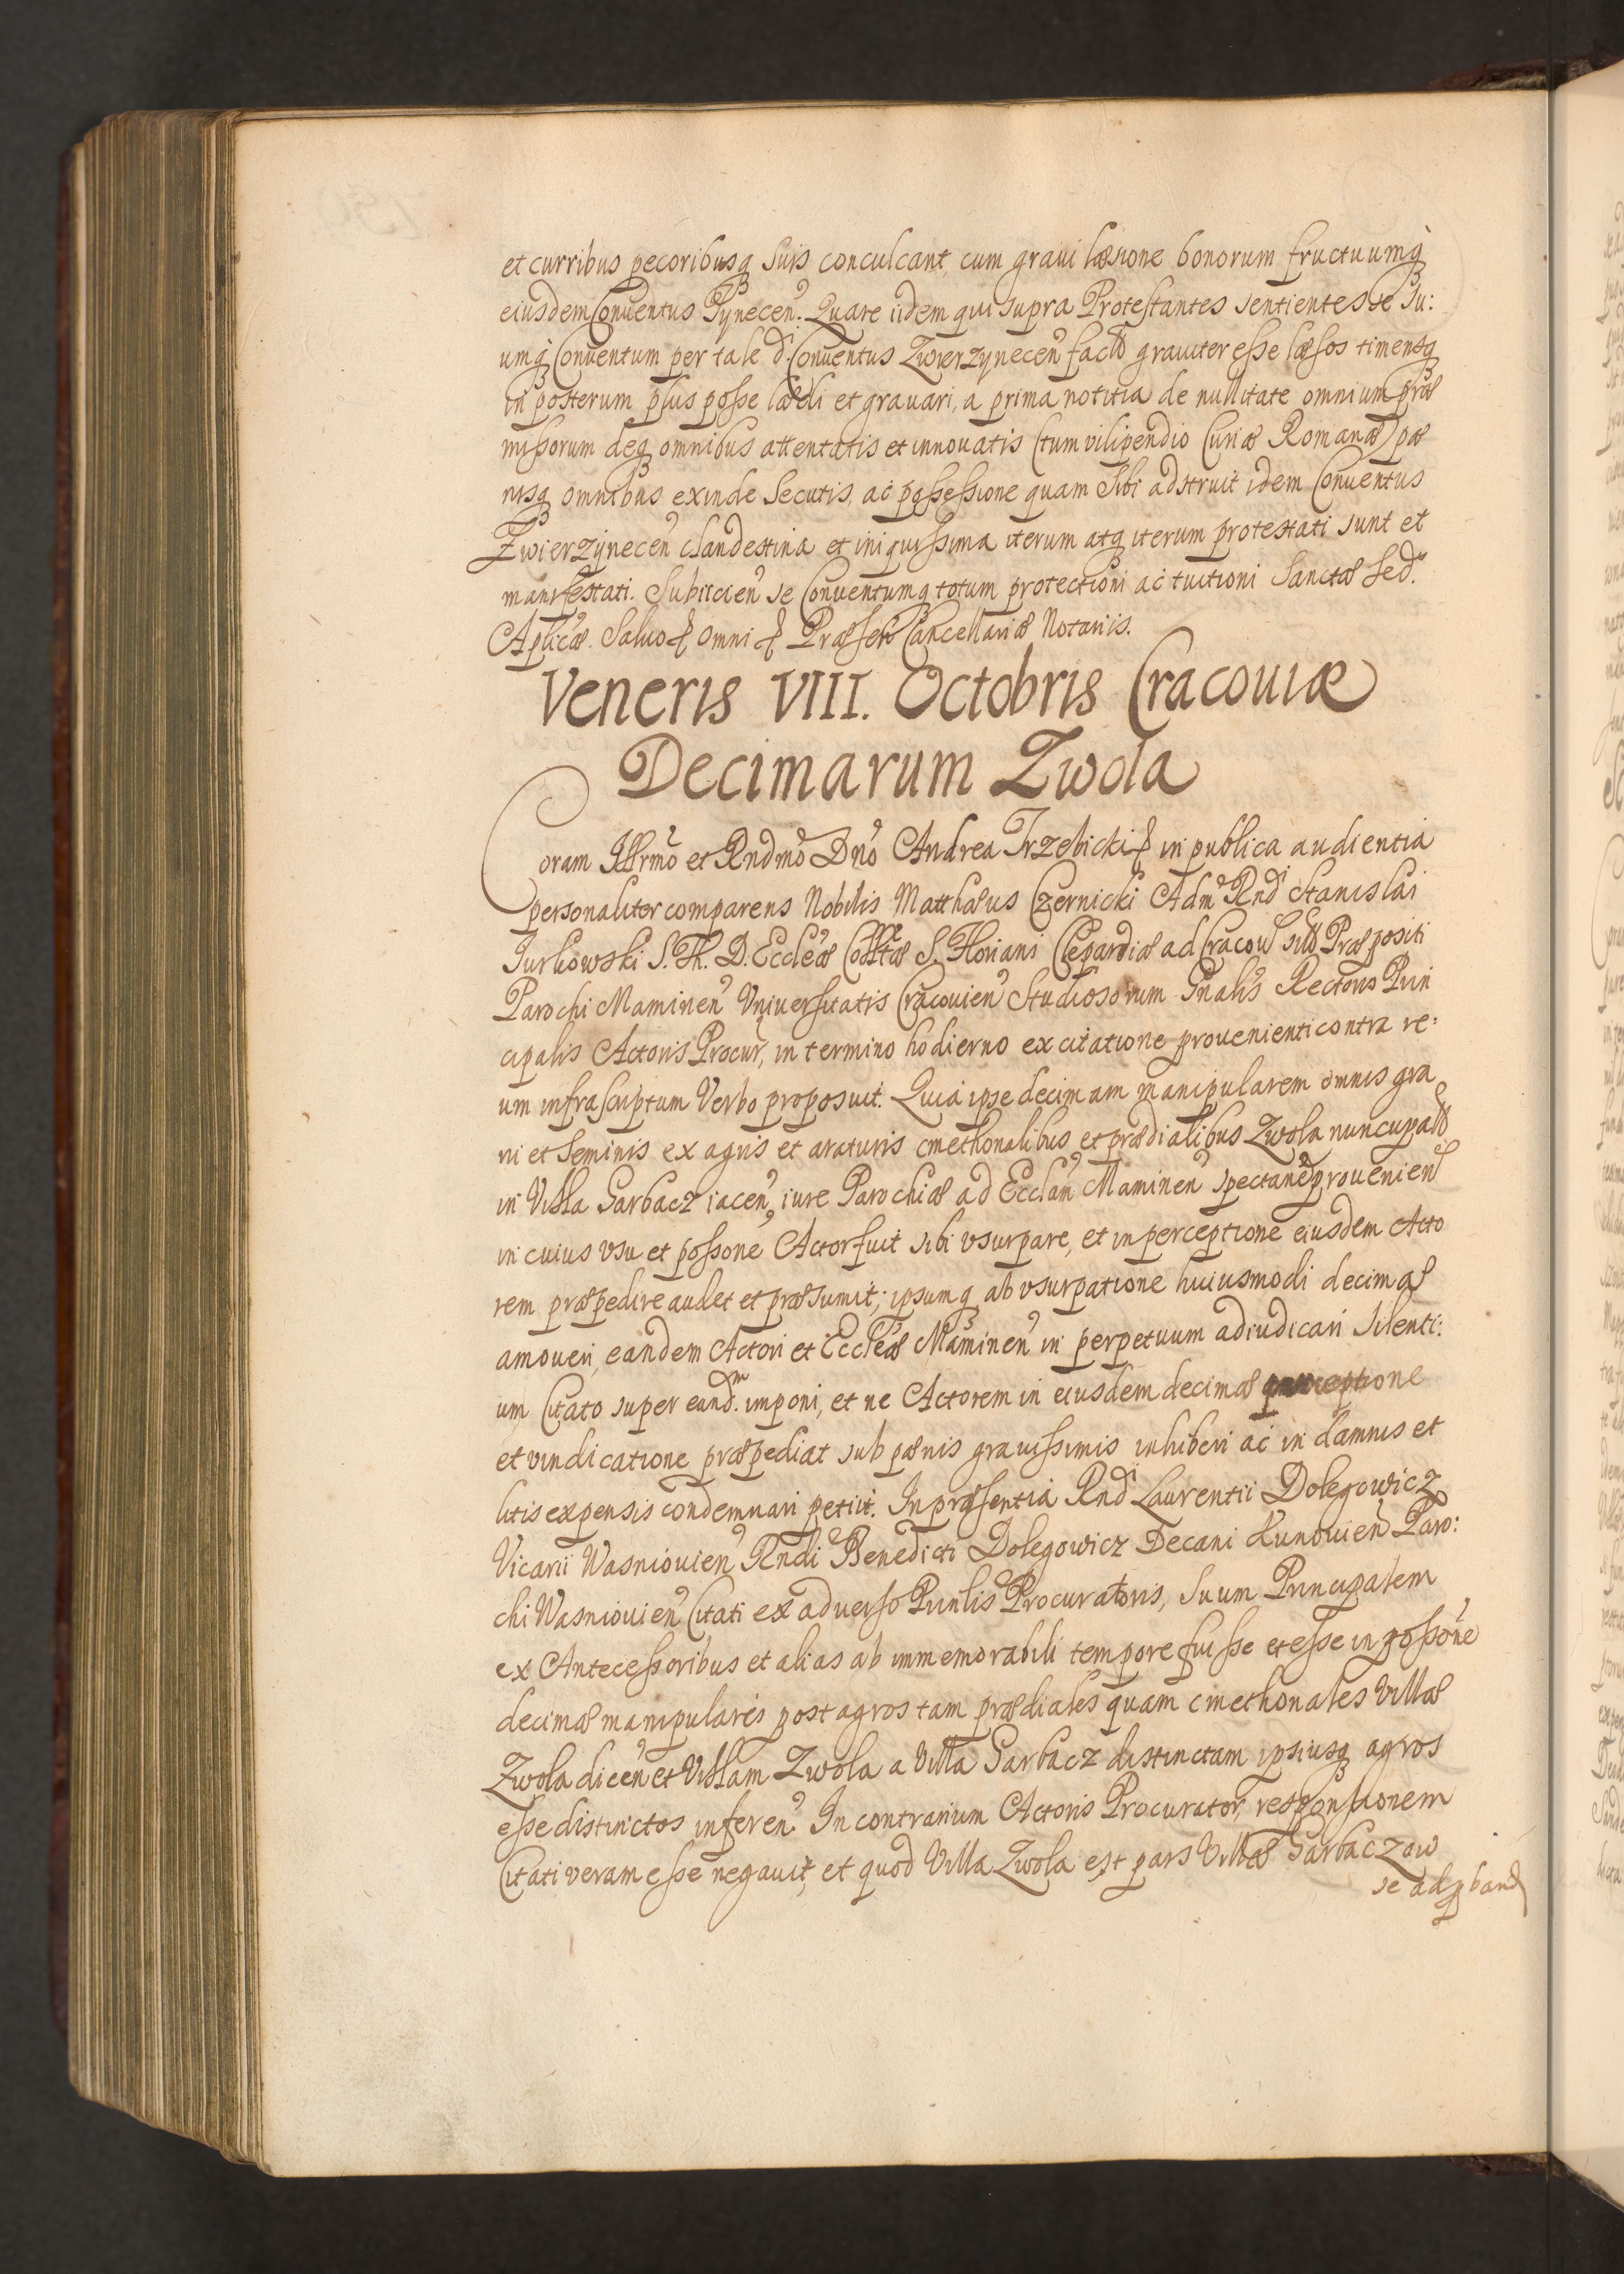 et curribus pecoribusq suis conculcant, cum graui læsione bonorum fructuumq
eiusdem Conuentus Tynecen. Quare iidem qui supra Protestantes sentientes se su:
umq Conuentum per tale d. Conuentus Zwierzynecen fact grauiter esse læsos timensq
in posterum plus posse lædi et grauari, a prima notitia de nullitate omnium præ
missorum deq omnibus attentatis et innouatis (tum vilipendio Curiæ Romanæ) pæ
nisq omnibus exinde secutis, ac possessione quam sibi adstruit idem Conuentus
Zwierzynecen clandestina et iniquissima iterum atq iterum protestati sunt et
manifestati. Subiicien se Conuentumq totum protectioni ac tuitioni Sanctæ Sed.
Aplicæ. Saluo omni Præsen Cancellariæ Notariis.
Veneris VIII. Octobris Cracouiæ
Decimarum Zwola
Coram Illrmo et Rndmo Dno Andrea Trzebicki in publica audientia
personaliter comparens Nobilis Matthæus Czernicki Adm Rndi Stanislai
Jurkowski S. Th. D. Eccleæ Colltæ S. Floriani Clepardiæ ad Cracou sitt Præpositi
Parochi Maminen Vniuersitatis Cracouien Studiosorum Gnalis Rectoris Prin
cipalis Actoris Procur, in termino hodierno ex citatione prouenienti contra re:
um infrascriptum Verbo proposuit. Quia ipse decimam manipularem omnis gra
ni et seminis ex agris et araturis cmethonalibus et prædialibus Zwola nuncupatt
in Villa Garbacz iacen, iure Parochiæ ad Ecclan Maminen spectane prouenien
in cuius vsu et possone Actor fuit sibi vsurpare, et in perceptione eiusdem Acto
rem præpedire audet et præsumit; ipsumq ab vsurpatione huiusmodi decimæ
amoueri, eandem Actori et Eccleæ Maminen in perpetuum adiudicari silenti:
um Citato super eandm. imponi, et ne Actorem in eiusdem decimæ perceptione
et vindicatione præpediat sub pænis grauissimis inhiberi ac in damnis et
litis expensis condemnari petiit. In præsentia Rndi Laurentii Dolegowicz
Vicarii Wasniouien Rndi Benedicti Dolegowicz Decani Kunouien Paro:
chi Wasniouien Citati ex aduerso Prinlis Procuratoris, suum Principalem
ex Antecessoribus et alias ab immemorabili tempore fuisse et esse in possone
decimæ manipularis post agros tam prædiales quam cmethonales Villæ
Zwola dicen et Villam Zwola a Villa Garbacz distinctam ipsiusq agros
esse distinctos inferen. In contrarium Actoris Procurator, responsionem
Citati veram esse negauit, et quod Villa Zwola est pars Villæ Garbacz aw
se ad pband